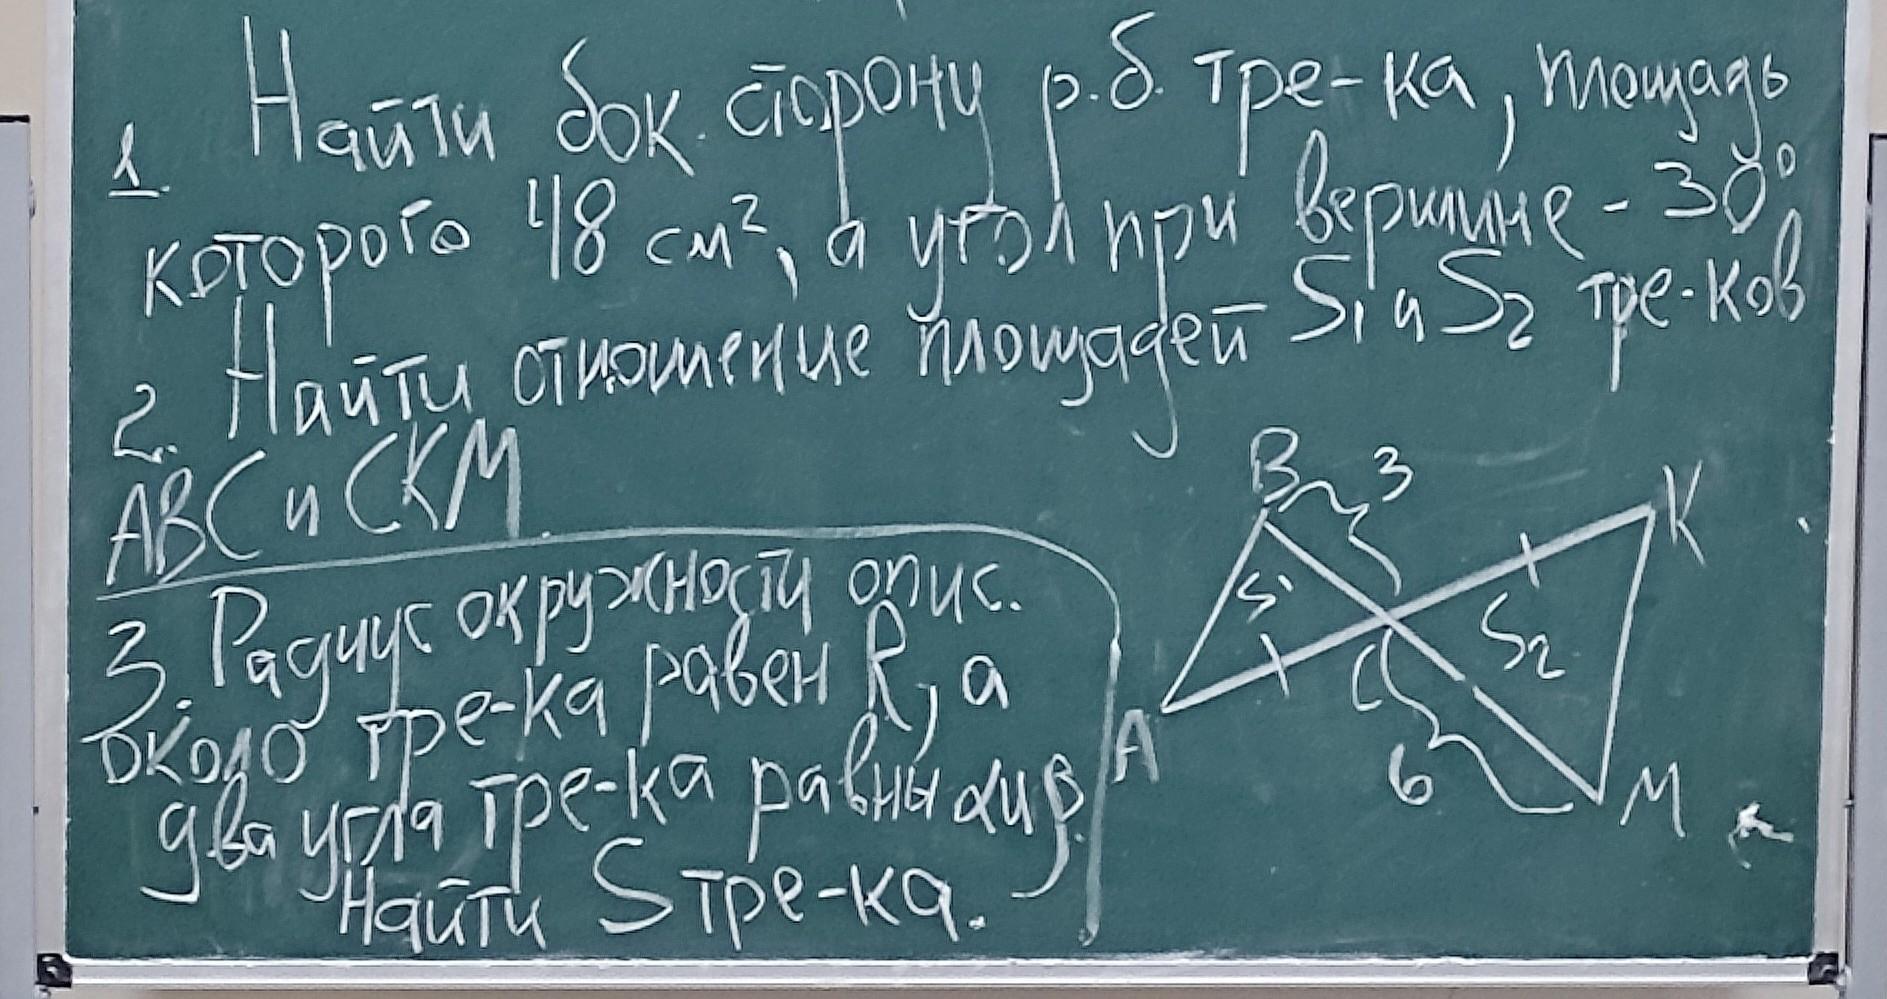 1. Найти бок. сторону р.б. тре-ка, площадь
которого 48 см², а угол при вершине - 30°
2. Найти отношение площадей S₁ и S₂ тре-ков
ABC и CKM.
3. Радиус окружности опис.
около тре-ка равен R, а
два угла тре-ка равны α и β.
Найти S тре-ка.
B 3 K
S₁ S₂
A C 6 M